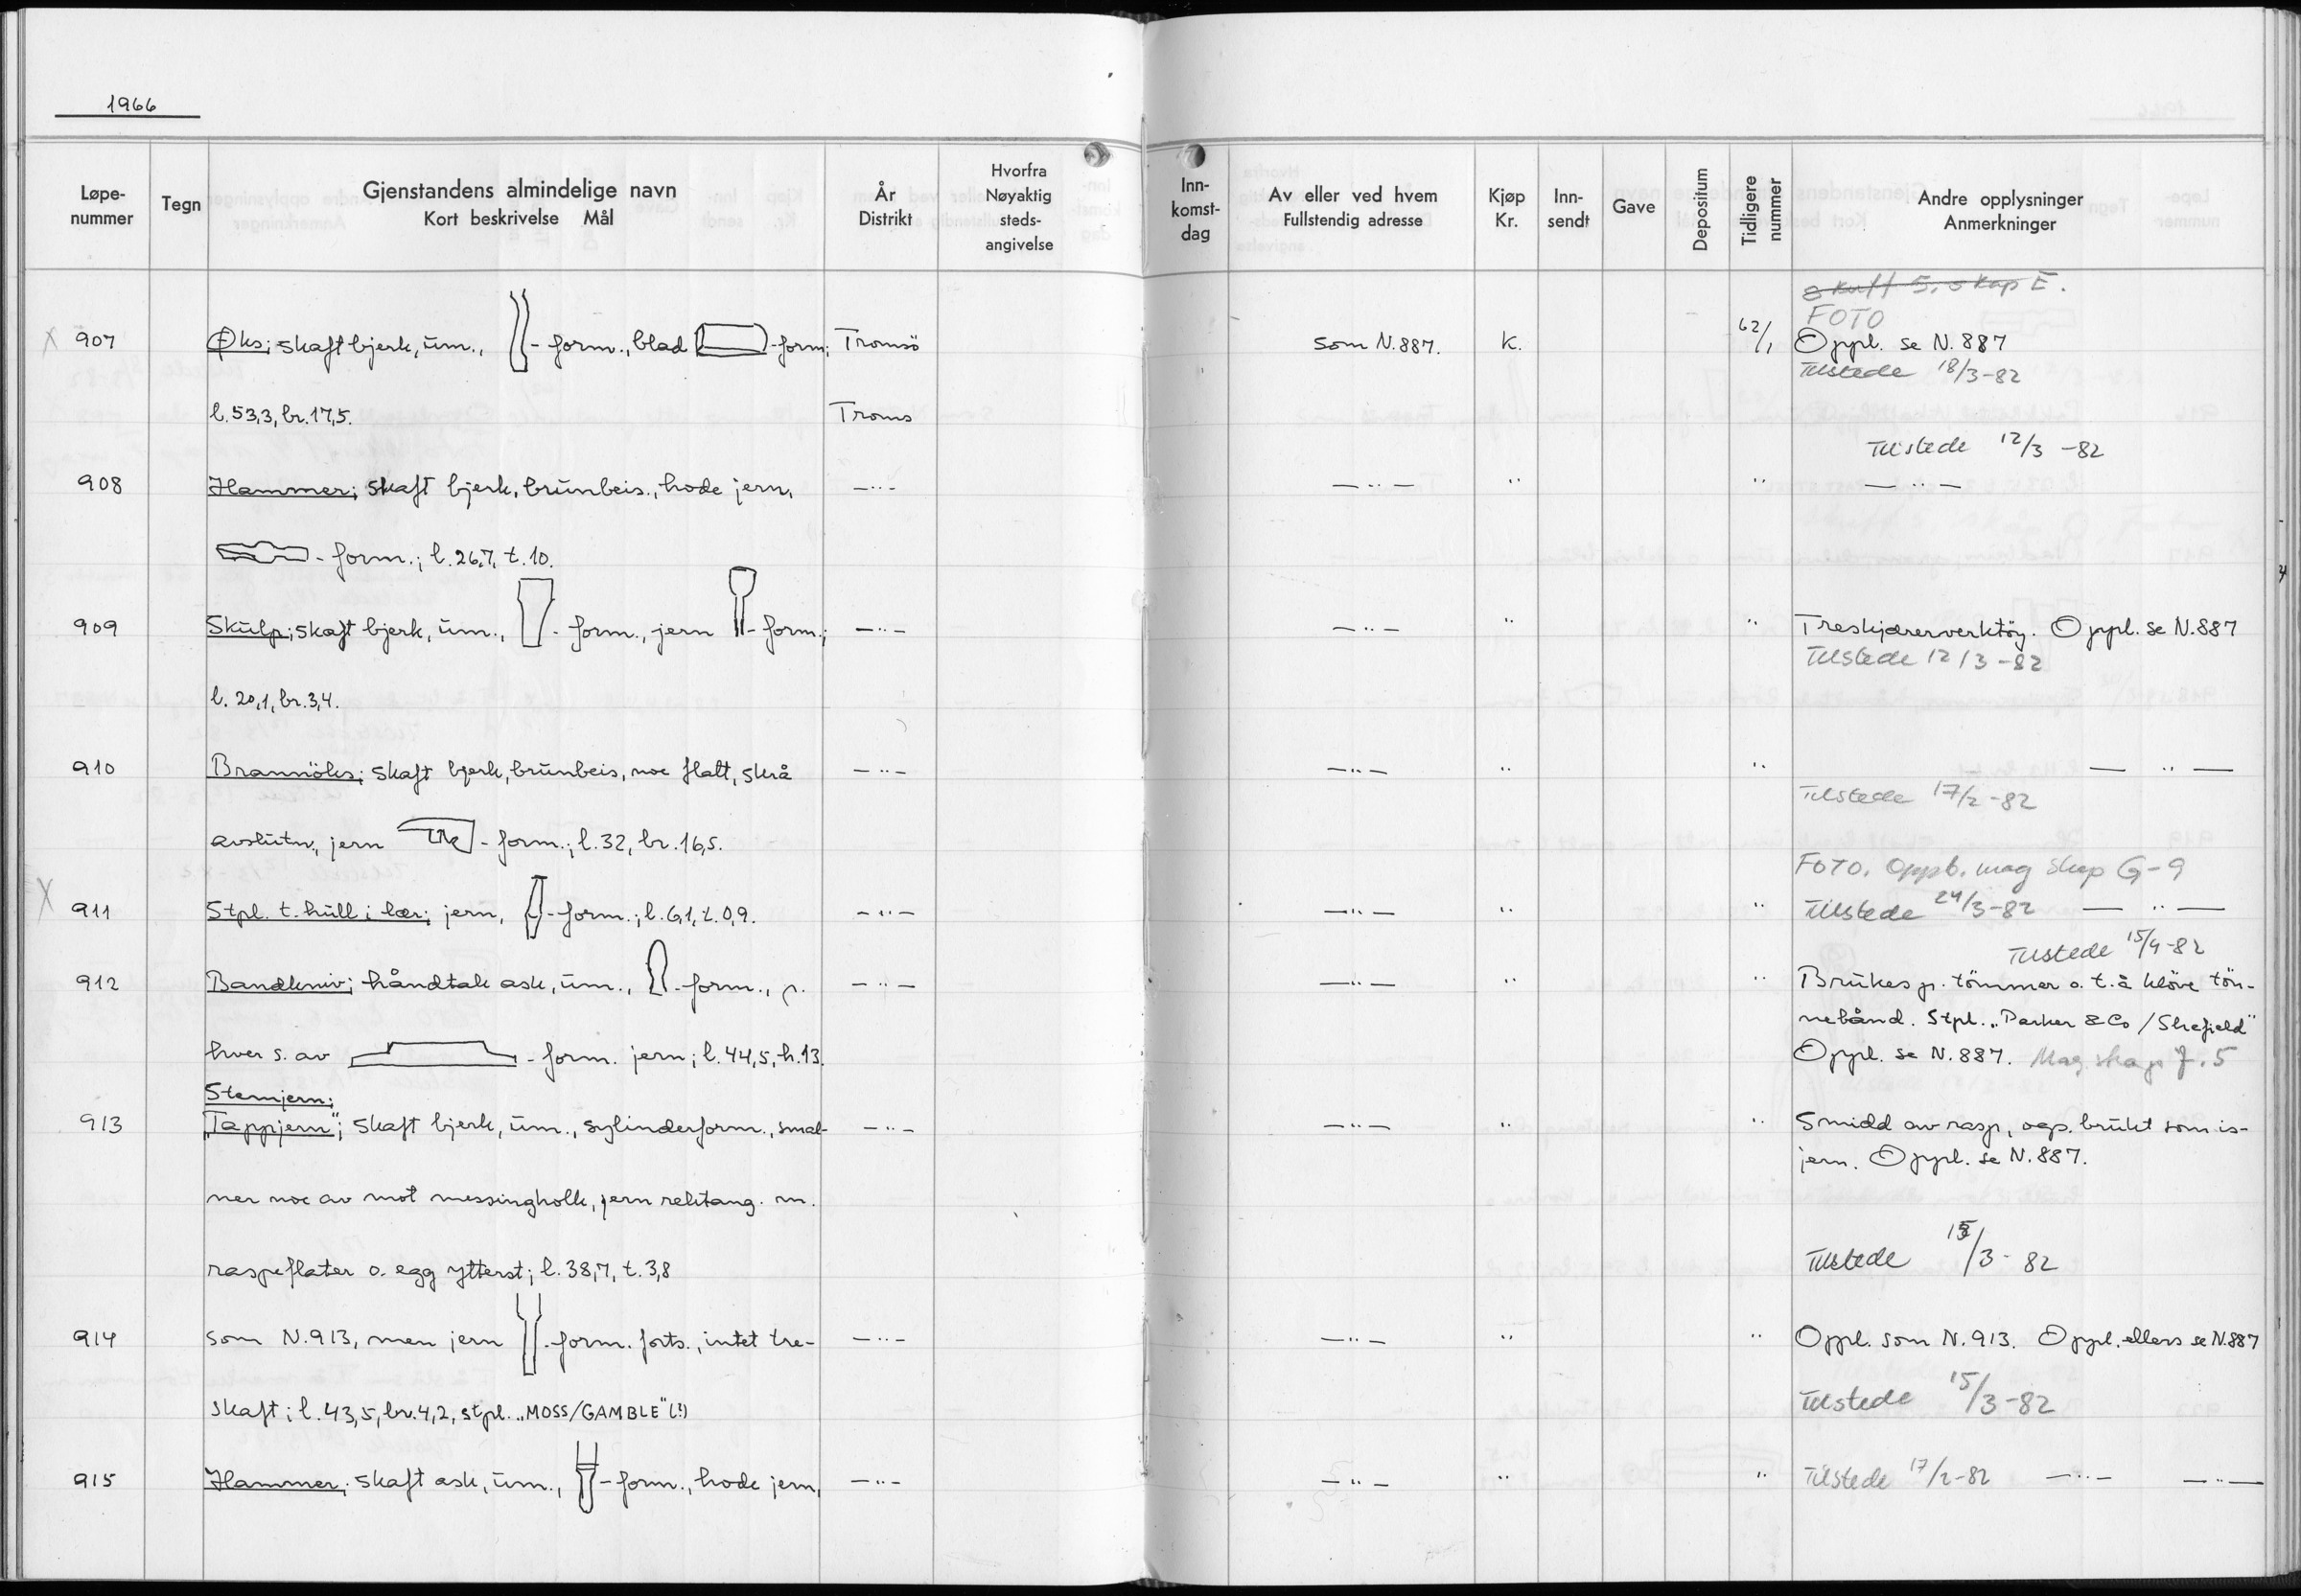 1966
Løpe-nummer Tegn Gjenstandens almindelige navn Kort beskrivelse Mål År Distrikt Hvorfra Nøyaktig steds-angivelse Inn-komst-dag Av eller ved hvem Fullstendig adresse Kjøp Kr. Inn-sendt Gave Depositum Tidligere nummer Andre opplysninger Anmerkninger
skuff 5, skap E.
FOTO
X 907 Øks; skaft bjerk, um., -form., blad -form; Tromsö som N.887. K. 62/1 Oppl. se N.887
Tilstede 18/3-82
l.53,3, br.17,5. Troms
Tilstede 12/3-82
908 Hammer; skaft bjerk, brunbeis., hode jern, —"— —"— " " —"—
-form.; l.26,7, t.10.
909 Skulp; skaft bjerk, um., -form., jern -form.; —"— —"— " " Treskjærerverktöy. Oppl. se N.887
Tilstede 12/3-82
l. 20,1, br.3,4.
910 Brannöks; skaft bjerk, brunbeis, noe flatt, skrå —"— —"— " " —"—
Tilstede 17/2-82
avslutn., jern -form.; l.32, br.16,5.
FOTO. Oppb. mag skap G-9
X 911 Stpl. t. hull i lær; jern, -form.; l.6,1, t.0,9. —"— —"— " " Tilstede 24/3-82 —"—
Tilstede 15/4-82
912 Bandkniv; håndtak ask, um., -form., p. —"— —"— " " Brukes p. tömmer o. t. å klöve tön-
nebånd. Stpl. „Parker & Co / Shefield"
hver s. av -form. jern; l.44,5, h.13. Oppl. se N.887. Mag. skap J.5
Stemjern;
913 „Tappjern"; skaft bjerk, um., sylinderform., smal- —"— —"— " " Smidd av rasp, ogs. brukt som is-
jern. Oppl. se N.887.
ner noe av mot messingholk, jern rektang. m.
Tilstede 15/3-82
raspeflater o. egg ytterst; l.38,7, t.3,8
914 som N.913, men jern -form. forts., intet tre- —"— —"— " " Oppl. som N.913. Oppl. ellers se N.887
Tilstede 15/3-82
skaft; l.43,5, br.4,2, stpl. „MOSS/GAMBLE" (!)
915 Hammer; skaft ask, um., -form., hode jern, —"— —"— " " Tilstede 17/2-82 —"— —"—